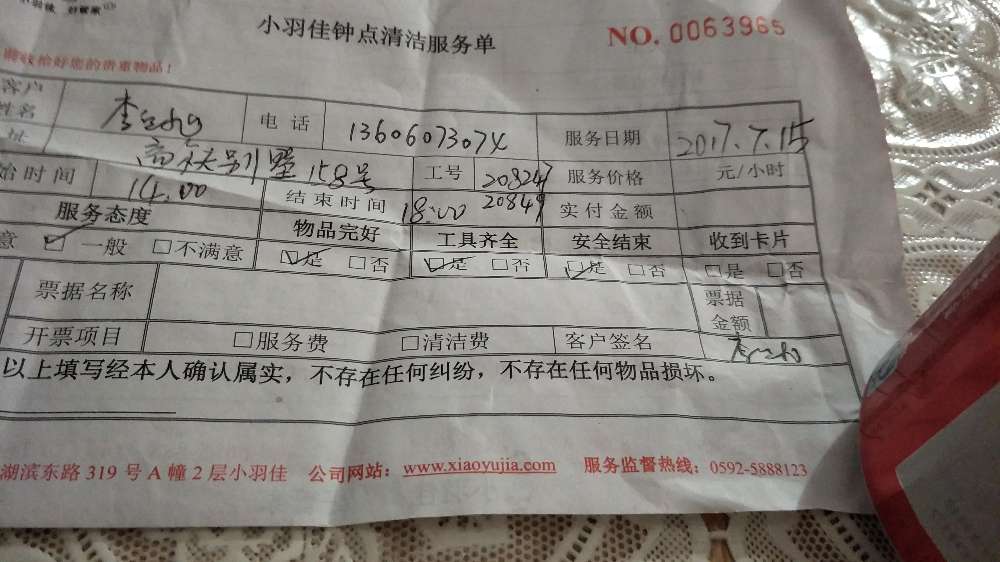 小羽佳 好管家
小羽佳钟点清洁服务单 NO. 0063965
请收拾好您的贵重物品!
客户姓名 电话 13606073074 服务日期 2017.7.15
址 别墅158号 工号 20824 20849 服务价格 元/小时
始时间 14:00 结束时间 18:00 实付金额
服务态度 物品完好 工具齐全 安全结束 收到卡片
意 ☑ 一般 □不满意 ☑是 □否 ☑是 □否 ☑是 □否 □是 □否
票据名称 票据金额
开票项目 □服务费 □清洁费 客户签名
以上填写经本人确认属实，不存在任何纠纷，不存在任何物品损坏。
湖滨东路 319 号 A 幢 2 层小羽佳 公司网站：www.xiaoyujia.com 服务监督热线：0592-5888123